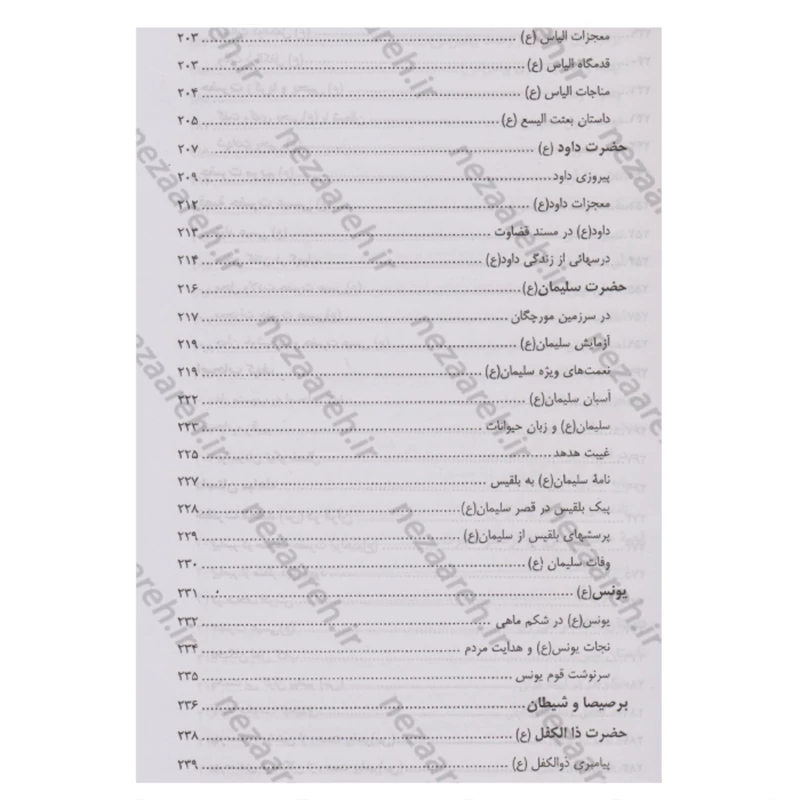 معجزات الیاس (ع) ........ ۲۰۳
قدمگاه الیاس (ع) ........ ۲۰۳
مناجات الیاس (ع) ........ ۲۰۴
داستان بعثت الیسع (ع) ........ ۲۰۵
حضرت داود (ع) ........ ۲۰۷
پیروزی داود ........ ۲۰۹
معجزات داود(ع) ........ ۲۱۲
داود(ع) در مسند قضاوت ........ ۲۱۳
درسهائی از زندگی داود(ع) ........ ۲۱۴
حضرت سلیمان(ع) ........ ۲۱۶
در سرزمین مورچگان ........ ۲۱۷
آزمایش سلیمان(ع) ........ ۲۱۹
نعمت‌های ویژه سلیمان(ع) ........ ۲۱۹
آسبان سلیمان(ع) ........ ۲۲۲
سلیمان(ع) و زبان حیوانات ........ ۲۲۳
غیبت هدهد ........ ۲۲۵
نامهٔ سلیمان(ع) به بلقیس ........ ۲۲۷
پیک بلقیس در قصر سلیمان(ع) ........ ۲۲۸
پرسشهای بلقیس از سلیمان(ع) ........ ۲۲۹
وفات سلیمان (ع) ........ ۲۳۰
یونس(ع) ........ ۲۳۱
یونس(ع) در شکم ماهی ........ ۲۳۲
نجات یونس(ع) و هدایت مردم ........ ۲۳۴
سرنوشت قوم یونس ........ ۲۳۵
برصیصا و شیطان ........ ۲۳۶
حضرت ذا الکفل (ع) ........ ۲۳۸
پیامبری ذوالکفل (ع) ........ ۲۳۹
nezaareh.ir